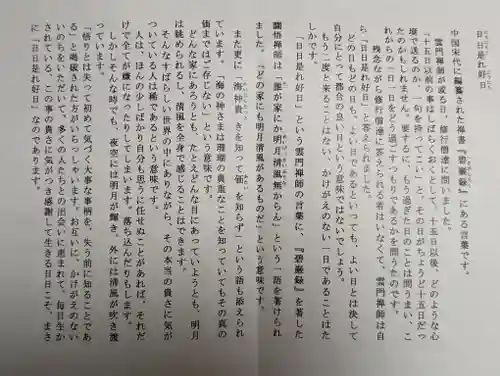 日日是れ好日
中国宋代に編纂された禅書『碧巌録』にある言葉です。
雲門禅師が或る日、修行僧達に問いました。
「十五日以前の事はしばらくおくとして、十五日以後、どのような心
境で送るのか、一句を持ってこい」と。その日がちょうど十五日だっ
たのかもしれません。要するに、もう過ぎた日のことは問うまい、こ
れからの一日一日をどう過すつもりであるかを問うたのです。
残念ながら、修行僧達に答えられる者はいなくて、雲門禅師は自
ら「日日是れ好日」と答えられました。
どの日もどの日も、よい日であるといっても、よい日とは決して
自分にとって都合の良い日という意味ではないでしょう。
もう二度と来ることはない、かけがえのない一日であることはた
しかです。
「日日是れ好日」という雲門禅師の言葉に、『碧巌録』を著した
圜悟禅師は「誰が家にか明月清風無からん」という一語を著けられ
ました。「どの家にも明月清風があるものだ」という意味です。
また更に「海神貴きを知って価を知らず」という語も添えられ
ています。「海の神さまは珊瑚の貴重なことを知っていてもその真の
価まではご存じない」という意味です。
どんな家にあろうとも、たとえどんな目にあっていようとも、明月
は眺められるし、清風を全身で感じることはできます。
そんなすばらしい世界の中にありながら、その本当の貴さに気が
ついている人は稀であるという意味です。
人は、ほんの少しばかり自分の思うに任せぬことがあれば、それだ
けで全てが嫌になったりしてしまいます。落ち込んだりもします。
しかしそんな時でも、夜空には明月が輝き、外には清風が吹き渡
っています。
「悟りとは失って初めて気づく大事な事柄を、失う前に知ることであ
る」と喝破された方がいらっしゃいます。お互いに、かけがえのない
いのちをいただいて、多くの人たちとの出会いに恵まれて、毎日生か
されている、この事の貴さに気がつき感謝して生きる日日こそ、まさ
に「日日是れ好日」なのであります。